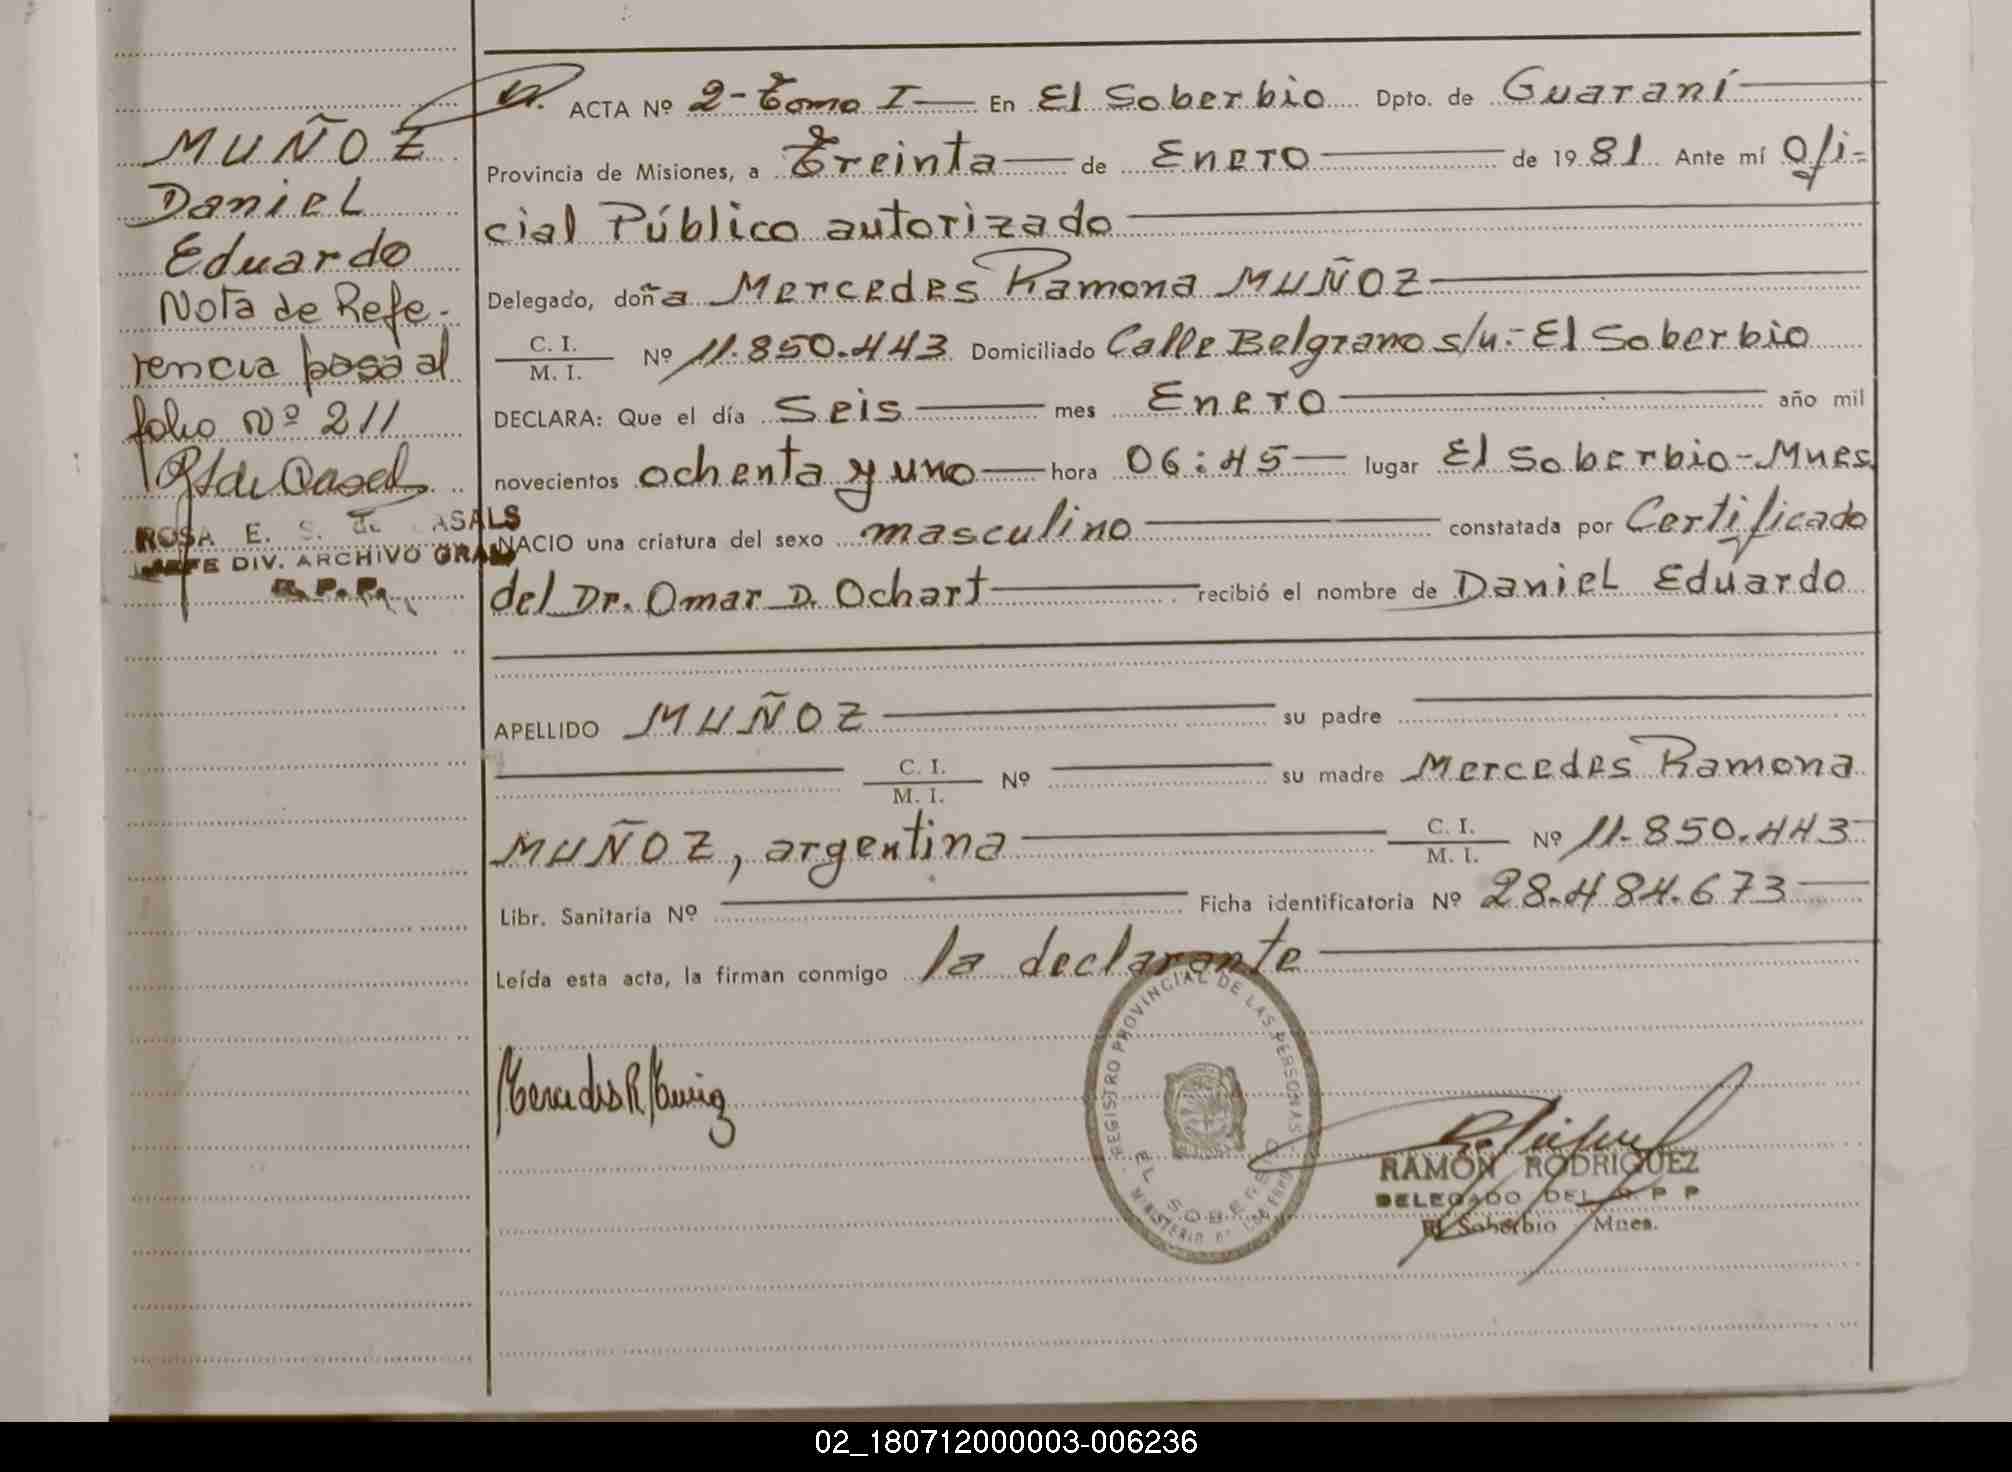 MUÑOZ
Daniel
Eduardo
Nota de Refe-
rencia pasa al
folio Nº 211
ROSA E. S. de CASALS
JEFE DIV. ARCHIVO GRAL
R. P. P.
ACTA Nº 2-Tomo I En El Soberbio Dpto. de Guaraní
Provincia de Misiones, a Treinta de Enero de 1981 Ante mí Ofi-
cial Público autorizado
Delegado, doña Mercedes Ramona MUÑOZ
C. I.
M. I. Nº 11.850.443 Domiciliado Calle Belgrano s/n.- El Soberbio
DECLARA: Que el día Seis mes Enero año mil
novecientos ochenta y uno hora 06:45 lugar El Soberbio-Mnes
NACIO una criatura del sexo masculino constatada por Certificado
del Dr. Omar D. Ochart recibió el nombre de Daniel Eduardo
APELLIDO MUÑOZ su padre
C. I.
M. I. Nº su madre Mercedes Ramona
MUÑOZ, argentina C. I.
M. I. Nº 11.850.443
Libr. Sanitaria Nº Ficha identificatoria Nº 28.484.673
Leída esta acta, la firman conmigo la declarante
Mercedes R Muñoz
REGISTRO PROVINCIAL DE LAS PERSONAS
EL SOBERBIO
MINISTERIO DE
RAMON RODRIGUEZ
DELEGADO DEL R P P
El Soberbio Mnes.
02_180712000003-006236